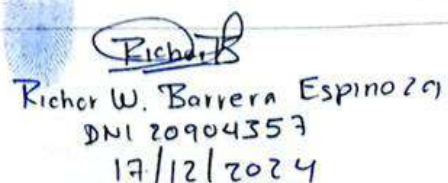 Richor B
Richor W. Barrera Espinoza
DNI 20904357
17/12/2024